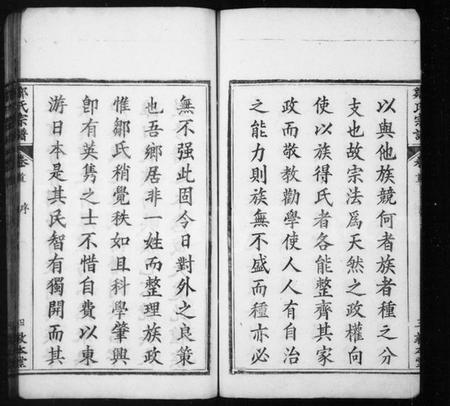 以與他族競何者族者種之分
支也故宗法爲天然之政權向
使以族得氏者各能整齊其家
政而敬教勸學使人人有自治
之能力則族無不盛而種亦必
鄒氏宗譜
卷首
序
四
敘本堂
無不强此固今日對外之良策
也吾鄉居非一姓而整理族政
惟鄒氏稍覺秩如且科學肇興
卽有英雋之士不惜自費以東
游日本是其民智有獨開而其